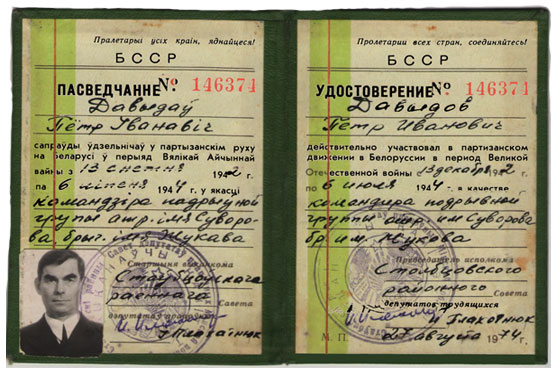 Пралетарыі усіх краін, яднайцеся!
БССР
ПАСВЕДЧАННЕ № 146374
Давыдаў
Пётр Іванавіч
сапраўды ўдзельнічаў у партызанскім руху
на Беларусі ў перыяд Вялікай Айчыннай
вайны з 13 снежня 1942
па 6 ліпеня 1944 г. у якасці
камандзіра падрыўной
групы атр. імя Суворо-
ва, брыг. імя Жукава
Старшыня выканкома
Стаўбцоўскага
раённага Савета
дэпутатаў працоўных
Пролетарии всех стран, соединяйтесь!
БССР
УДОСТОВЕРЕНИЕ № 146374
Давыдов
Петр Иванович
действительно участвовал в партизанском
движении в Белоруссии в период Великой
Отечественной войны с 13 декабря 1942
по 6 июля 1944 г. в качестве
командира подрывной
группы отр. им Суворова
бр. им. Жукова
Председатель исполкома
Столбцовского
районного Совета
депутатов трудящихся
М. П. 27 августа 1974